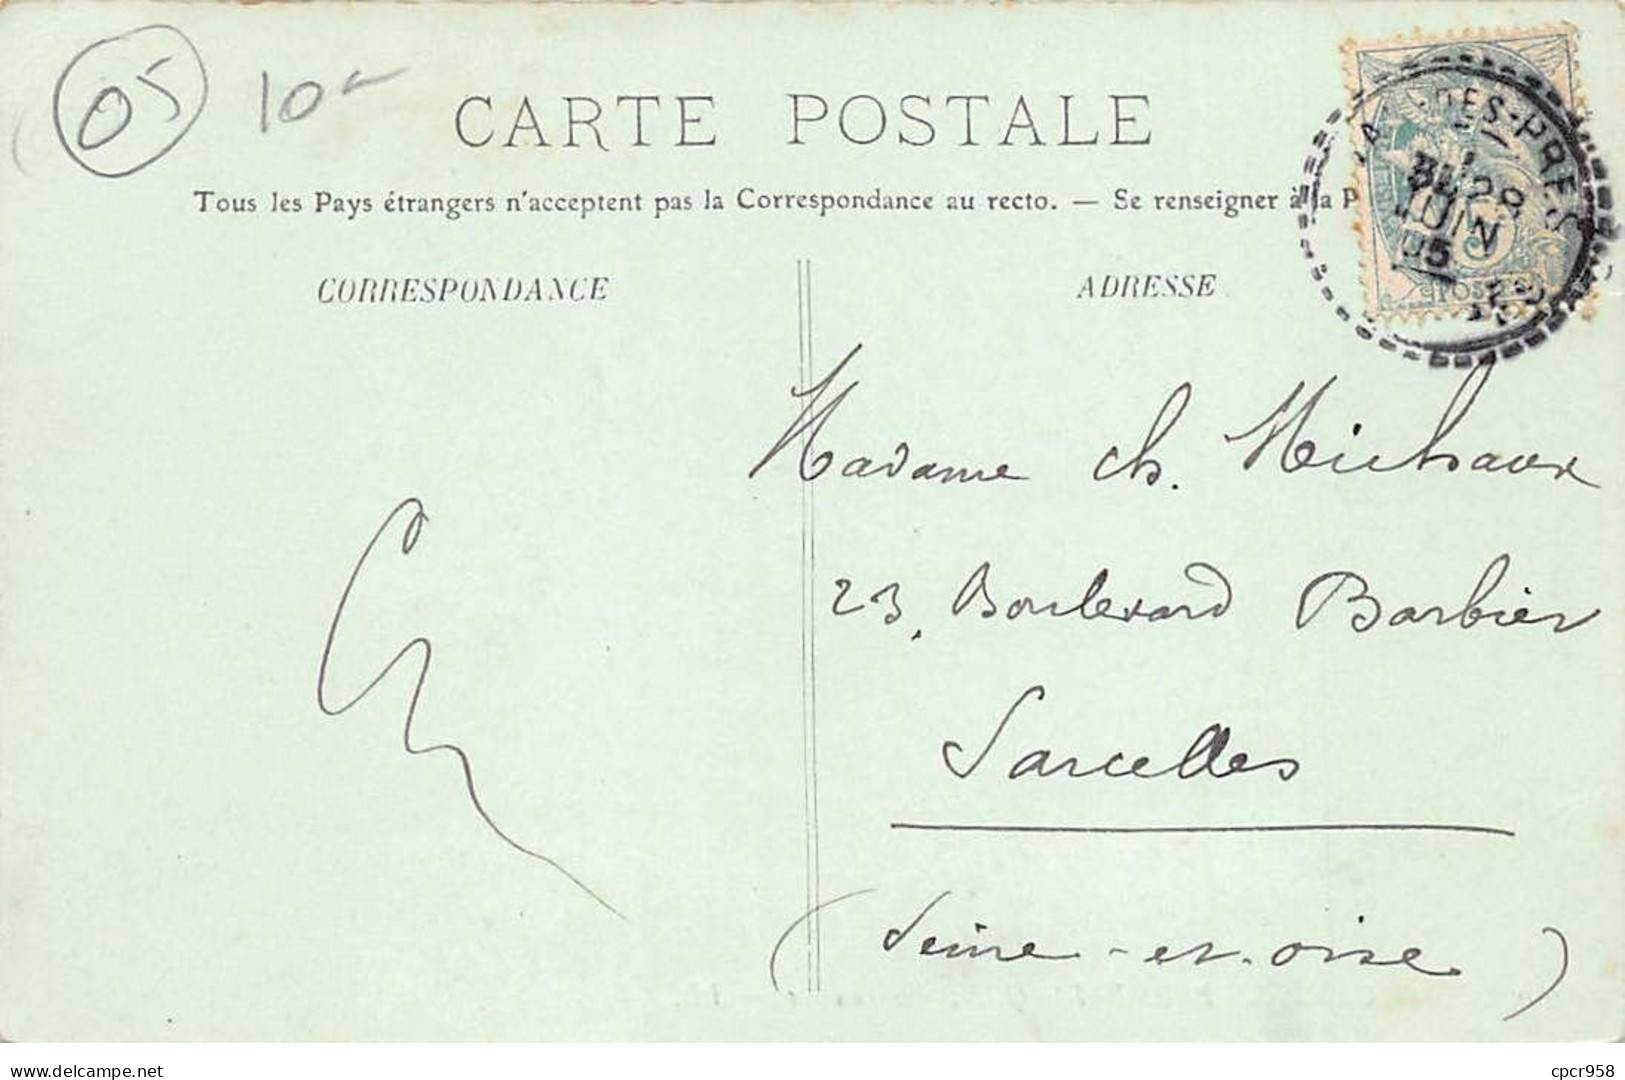 05 10-
CARTE POSTALE
Tous les Pays étrangers n'acceptent pas la Correspondance au recto. — Se renseigner à la P
CORRESPONDANCE
ADRESSE
DES-PRES
28
JUIN
05
5
POSTES
Madame Ch. Michaux
23, Boulevard Barbier
Sarcelles
(Seine-et-Oise)
delcampe.net
cpcr958